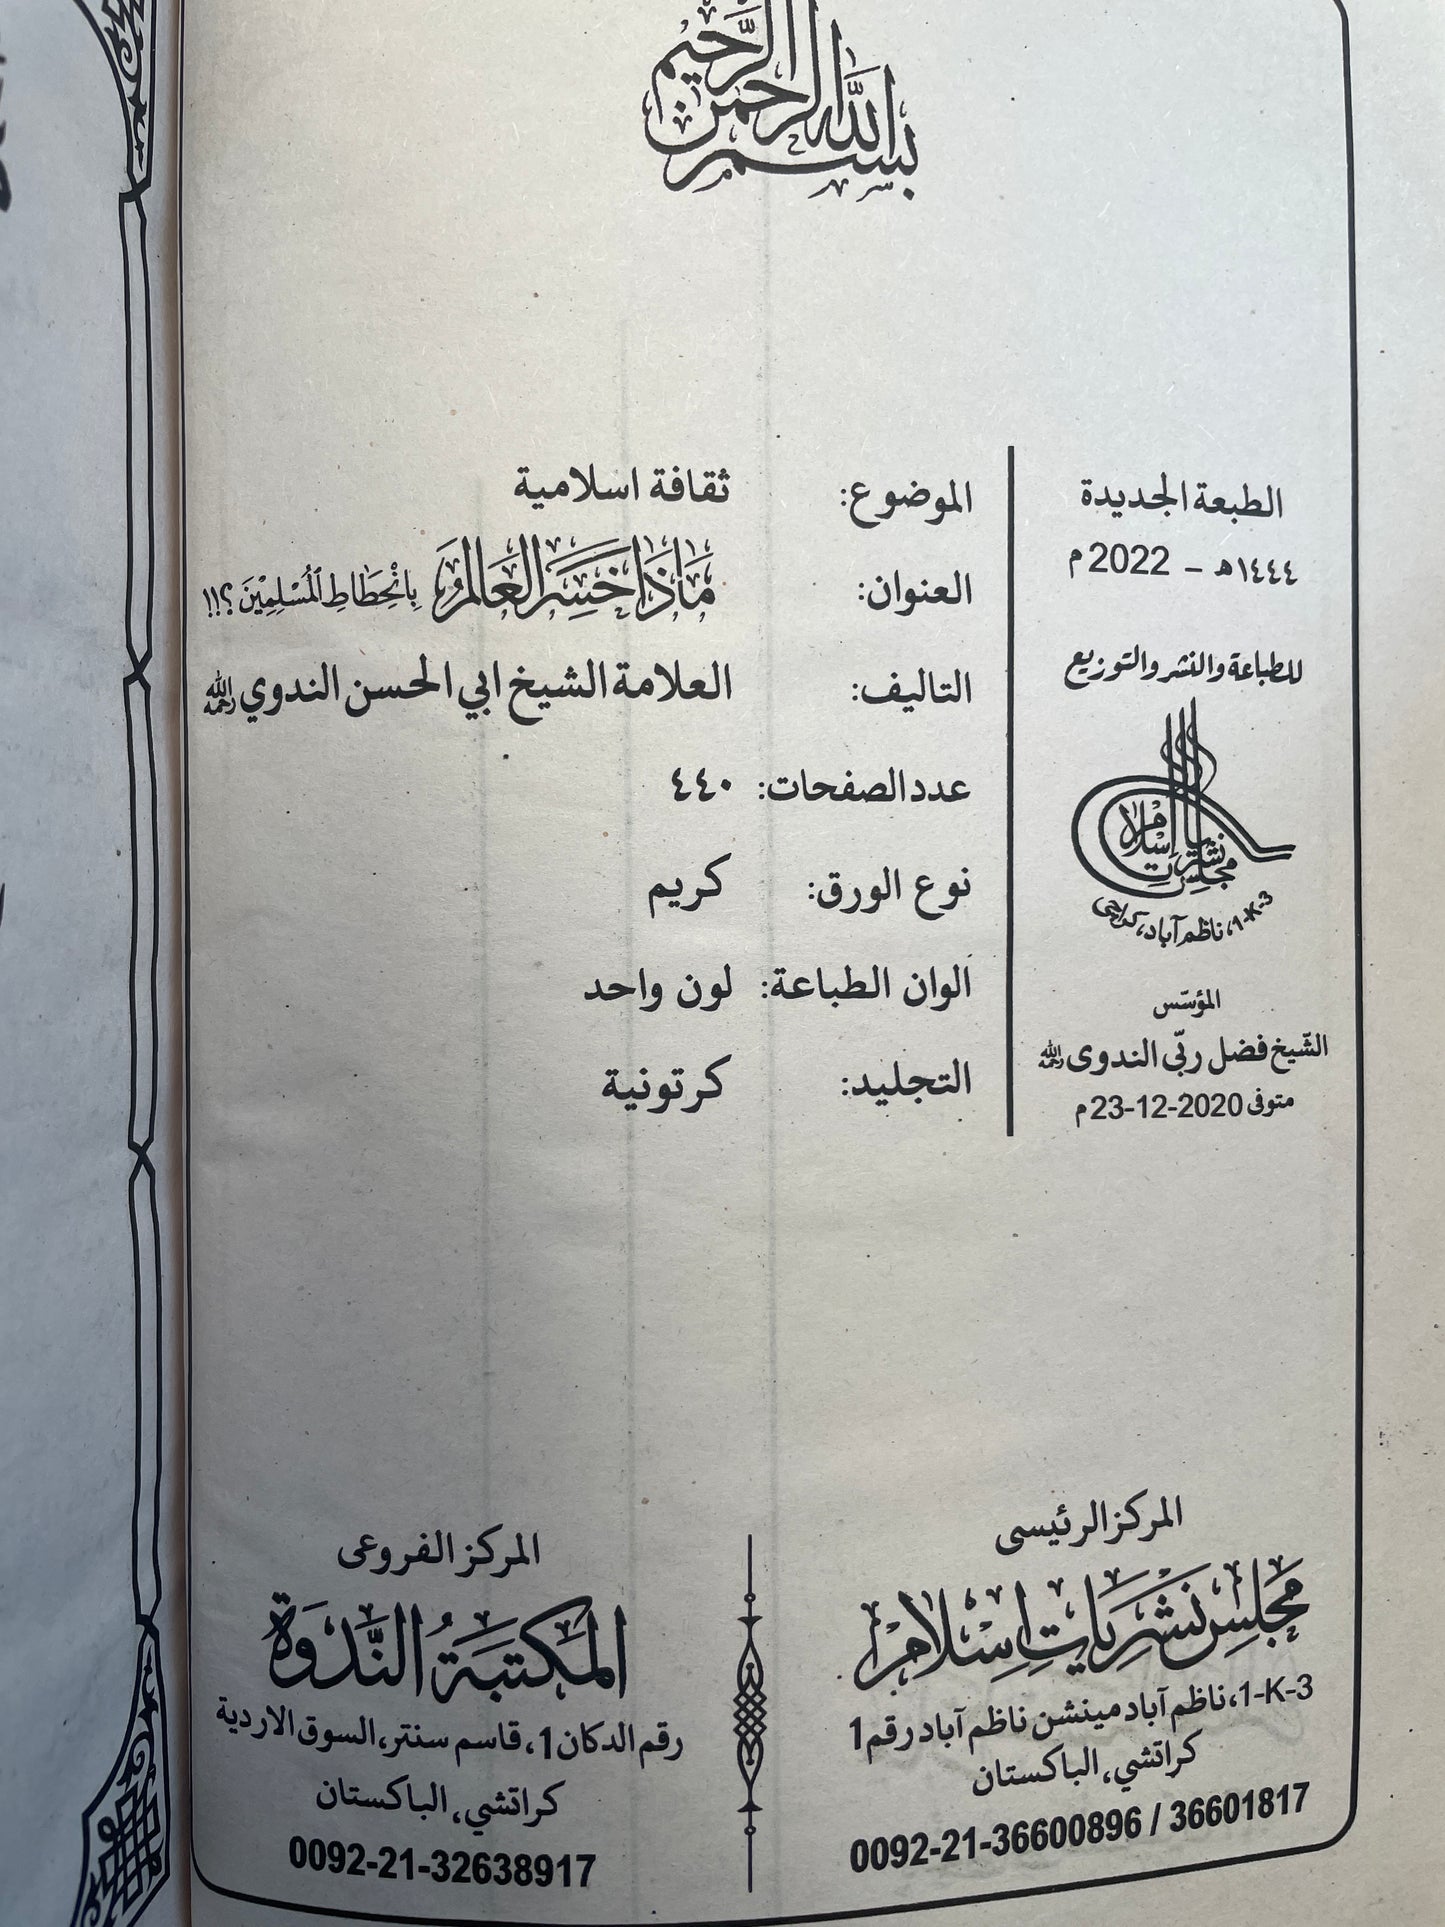 بسم الله الرحمن الرحيم
الطبعة الجديدة
١٤٤٤ھ – 2022م
للطباعة والنشر والتوزيع
مجلس نشریات اسلام
1-K-3، ناظم آباد، کراچی
المؤسّس
الشّيخ فضل ربّی الندوی رحمه الله
متوفی 2020-12-23م
الموضوع: ثقافة اسلامية
العنوان: مَاذَا خَسِرَ العَالَمُ بِانْحِطَاطِ المُسْلِمِيْنَ؟!!
التاليف: العلامة الشيخ ابي الحسن الندوي رحمه الله
عدد الصفحات: ٤٤٠
نوع الورق: كريم
الوان الطباعة: لون واحد
التجليد: كرتونية
المركز الرئيسی
مَجلسِ نَشریَاتِ اِسْلَام
1-K-3، ناظم آباد مينشن ناظم آباد رقم 1
كراتشي، الباكستان
0092-21-36600896 / 36601817
المركز الفروعی
المَكتبَةُ النَّدْوَة
رقم الدكان 1، قاسم سنتر، السوق الاردية
كراتشي، الباكستان
0092-21-32638917